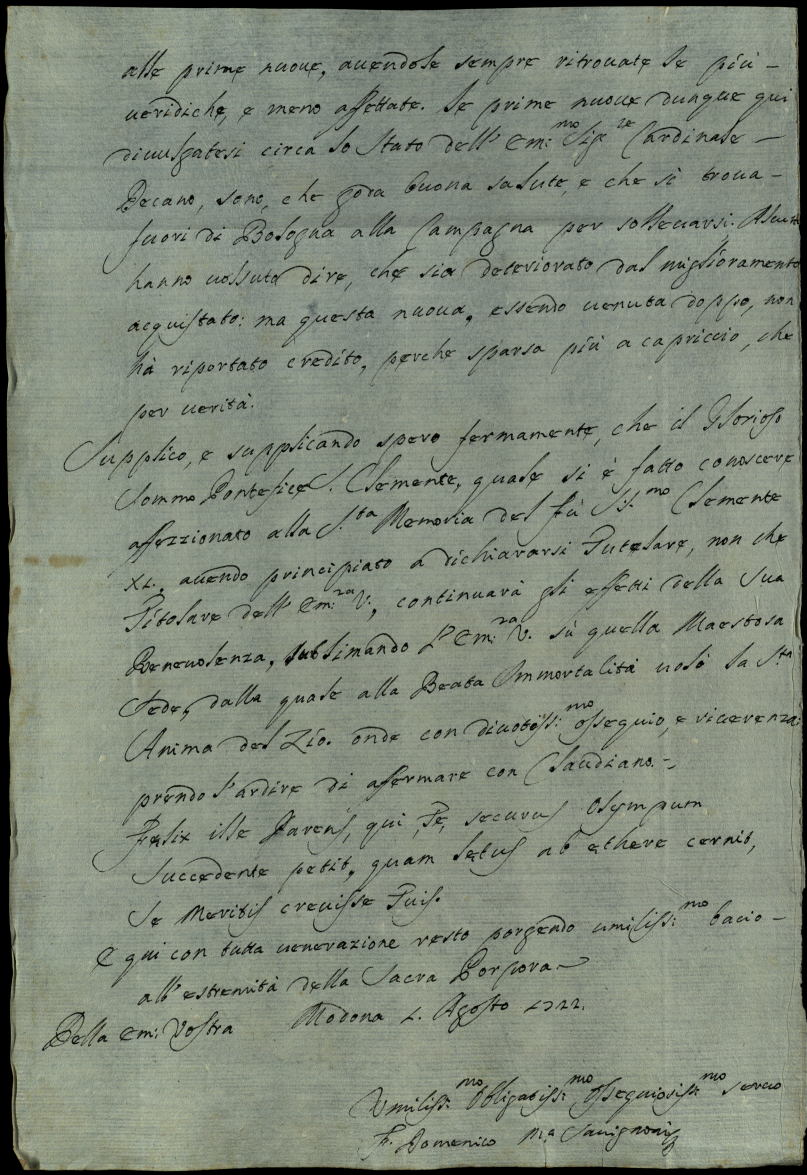 alle prime nuove, avendole sempre ritrovate le più
veridiche, e meno affettate. Le prime nuove dunque qui
divulgatesi circa lo Stato dell' Em:mo Sigre Cardinale
Decano, sono, che goda buona salute, e che si trova
fuori di Bologna alla Campagna per sollevarsi. Alcuni
hanno volsuto dire, che sia deteriorato dal miglioramento
acquistato: ma questa nuova, essendo venuta doppo, non
hà riportato credito, perche sparsa più a capriccio, che
per verità.
Supplico, e supplicando spero fermamente, che il Glorioso
Sommo Pontefice S. Clemente, quale si è fatto conoscere
affezzionato alla S.ta Memoria del fù SS.mo Clemente
XI., avendo principiato a dichiararsi Tutelare, non che
Titolare dell' Em:za V., continuarà gli effetti della Sua
Benevolenza, sublimando l' Em:za V. sù quella Maestosa
Sede, dalla quale alla Beata Immortalità volò la Sta
Anima del Zio. onde con divotiss:mo ossequio, e riverenza
prendo l'ardire di affermare con Claudiano.
Felix ille Parens, qui, Te, securus Olympum
Succedente petit, quam letus ab ethere cernit,
Se Meritis crevisse Tuis.
E qui con tutta venerazione resto porgendo umiliss:mo bacio
all' estremità della Sacra Porpora
Della Em: Vostra Modona 1. Agosto 1722.
Umiliss:mo Obligatiss:mo Ossequiosiss:mo servo
F. Domenico Ma